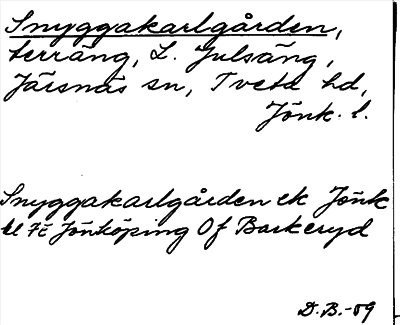 Snyggakarlgården,
terräng, L. Julsäng,
Järsnäs sn, Tveta hd,
Jönk. l.
Snyggakarlgården ek Jönk
bl 7E Jönköping Of Barkeryd
D.B.-59